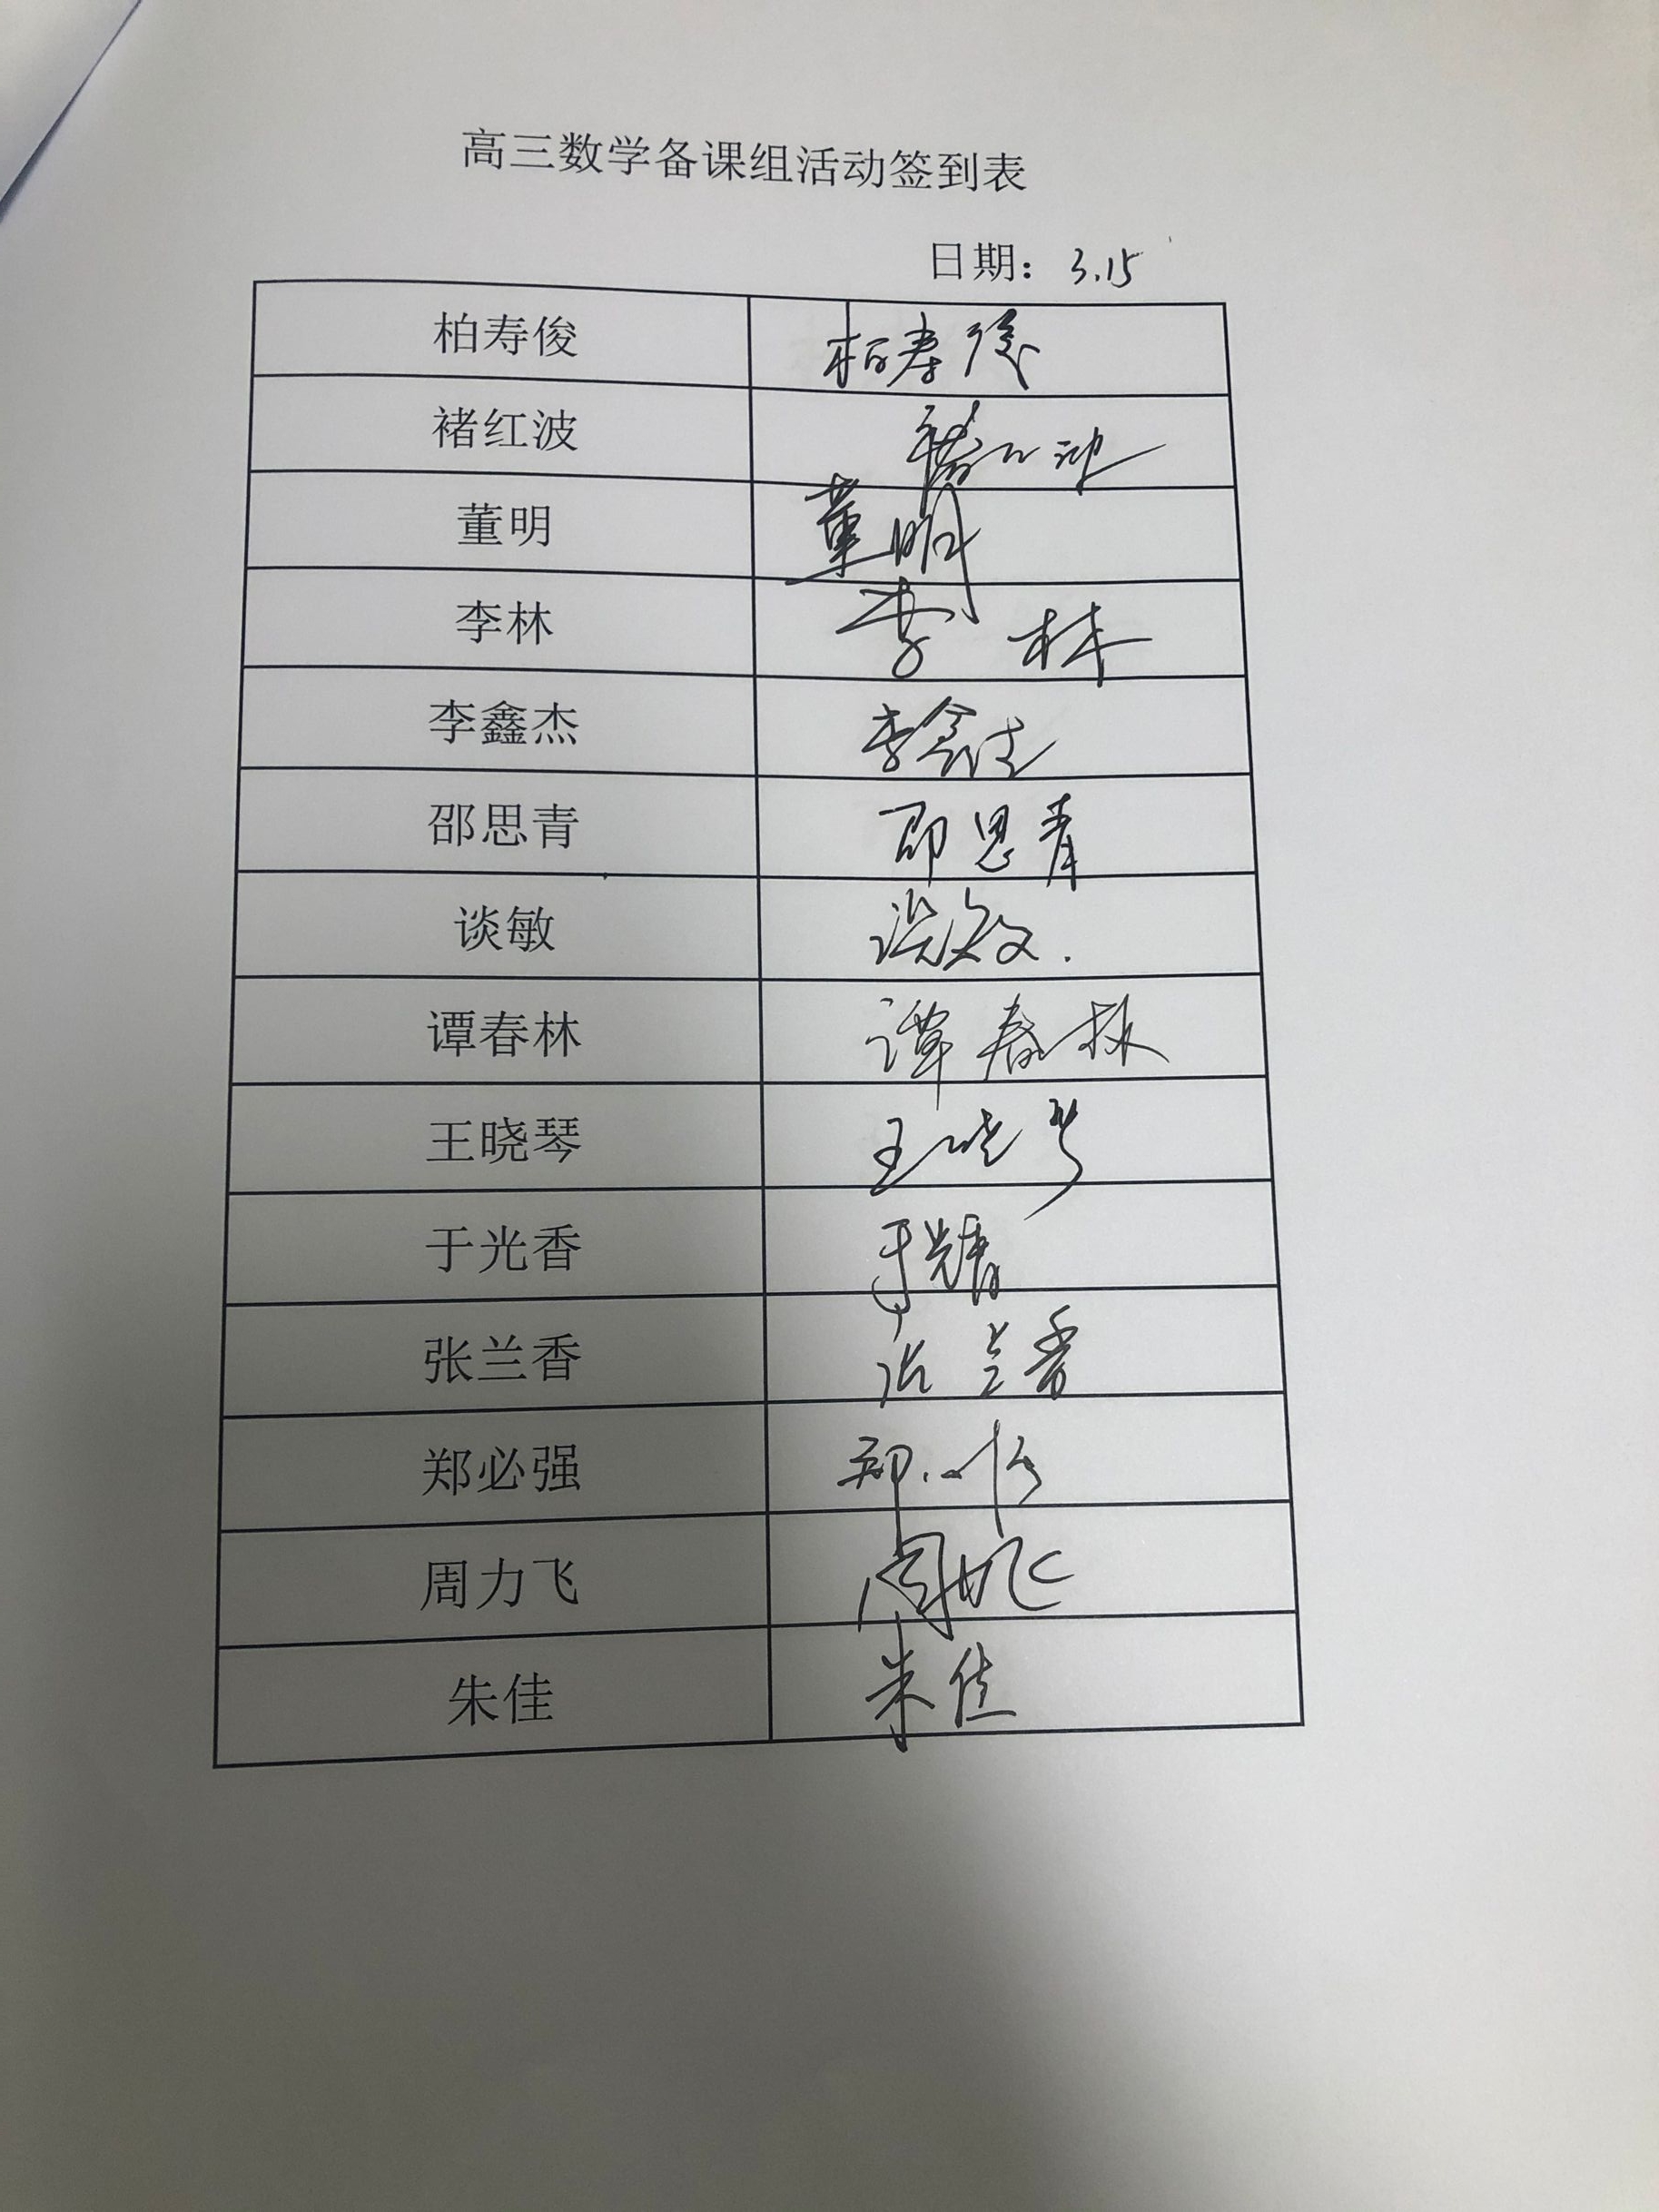 高三数学备课组活动签到表
日期：3.15
柏寿俊 柏寿俊
褚红波 褚红波
董明 董明
李林 李林
李鑫杰 李鑫杰
邵思青 邵思青
谈敏 谈敏.
谭春林 谭春林
王晓琴 王晓琴
于光香 于光香
张兰香 张兰香
郑必强 郑必强
周力飞 周力飞
朱佳 朱佳